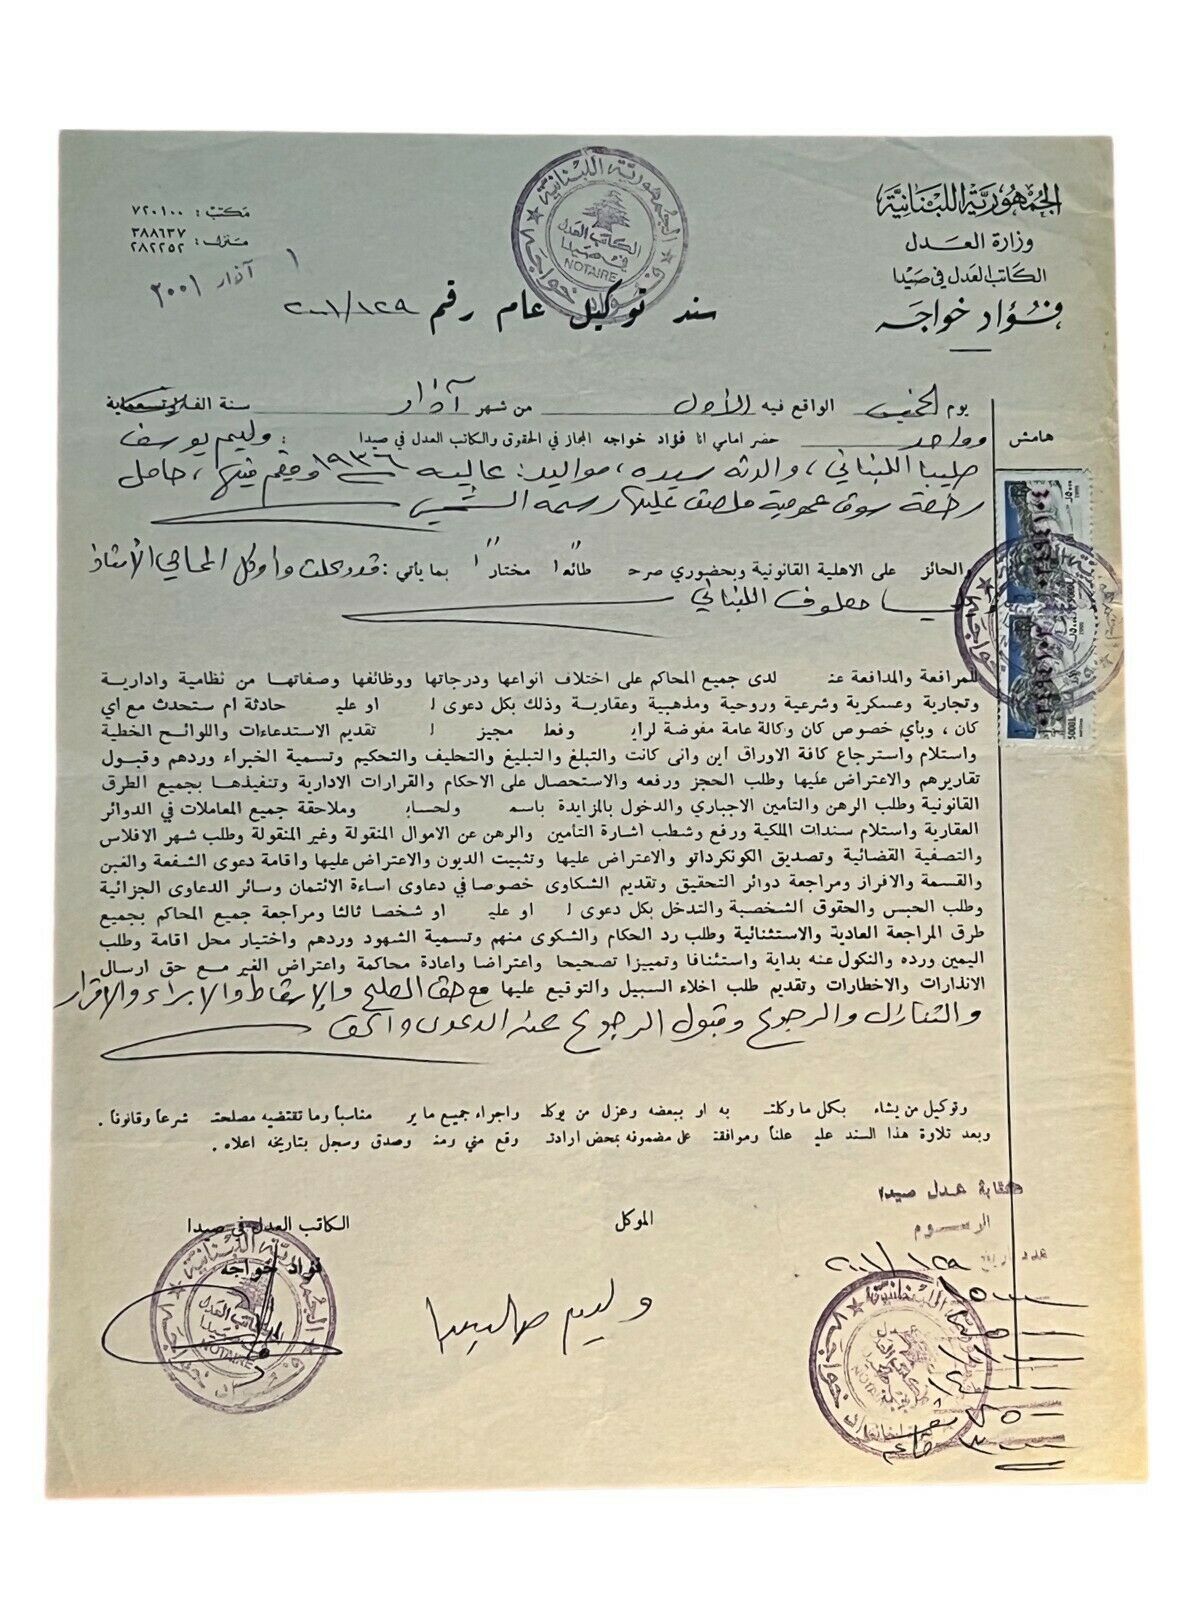 الجمهورية اللبنانية
وزارة العدل
الكاتب العدل في صيدا
فؤاد خواجه
مكتب : ٧٢٠١٠٠
منزل : ٣٨٨٦٣٧
٢٨٢٢٥٢
١ آذار ٢٠٠١
الجمهورية اللبنانية
الكاتب العدل
في صيدا
NOTAIRE
فؤاد خواجه
سند توكيل عام رقم ١٢٩/٢٠٠١
يوم الخميس الواقع فيه الأول من شهر آذار سنة الف
هامش
وواحد حضر امامي انا فؤاد خواجه المجاز في الحقوق والكاتب العدل في صيدا : وليم يوسف
صليبا اللبناني، والدته سيده، مواليد: عاليه ١٩٣٦ ومقيم فيها، حامل
رخصة سوق عمومية ملصق عليها رسمه الشمسي
والحائز على الاهلية القانونية وبحضوري صرح طائعاً مختاراً بما يأتي : قد وكلت وأوكل المحامي الأستاذ
معلوف اللبناني
للمرافعة والمدافعة عنـ لدى جميع المحاكم على اختلاف انواعها ودرجاتها ووظائفها وصفاتها من نظامية وادارية
وتجارية وعسكرية وشرعية وروحية ومذهبية وعقارية وذلك بكل دعوى لـ او عليـ حادثة ام ستحدث مع اي
كان ، وبأي خصوص كان وكالة عامة مفوضة لرايـ وفعلـ مجيز لـ تقديم الاستدعاءات واللوائح الخطية
واستلام واسترجاع كافة الاوراق أين وانى كانت والتبلغ والتبليغ والتحليف والتحكيم وتسمية الخبراء وردهم وقبول
تقاريرهم والاعتراض عليها وطلب الحجز ورفعه والاستحصال على الاحكام والقرارات الادارية وتنفيذها بجميع الطرق
القانونية وطلب الرهن والتأمين الاجباري والدخول بالمزايدة باسمـ ولحسابـ وملاحقة جميع المعاملات في الدوائر
العقارية واستلام سندات الملكية ورفع وشطب أشارة التأمين والرهن عن الاموال المنقولة وغير المنقولة وطلب شهر الافلاس
والتصفية القضائية وتصديق الكونكرداتو والاعتراض عليها وتثبيت الديون والاعتراض عليها واقامة دعوى الشفعة والغبن
والقسمة والافراز ومراجعة دوائر التحقيق وتقديم الشكاوى خصوصا في دعاوى اساءة الائتمان وسائر الدعاوى الجزائية
وطلب الحبس والحقوق الشخصية والتدخل بكل دعوى لـ او عليـ او شخصا ثالثا ومراجعة جميع المحاكم بجميع
طرق المراجعة العادية والاستثنائية وطلب رد الحكام والشكوى منهم وتسمية الشهود وردهم واختيار محل اقامة وطلب
اليمين ورده والنكول عنه بداية واستئنافا وتمييزا تصحيحا واعتراضا واعادة محاكمة واعتراض الغير مع حق ارسال
الانذارات والاخطارات وتقديم طلب اخلاء السبيل والتوقيع عليها مع حق الصلح والإسقاط والإبراء والإقرار
والتنازل والرجوع وقبول الرجوع عن الدعوى والحق
وتوكيل من يشاء بكل ما وكلتـ به او ببعضه وعزل من يوكله واجراء جميع ما يرـ مناسباً وما تقتضيه مصلحتـ شرعاً وقانوناً .
وبعد تلاوة هذا السند عليـ علناً وموافقتـ على مضمونه بمحض ارادتـ وقع مني ومنـ وصدق وسجل بتاريخه اعلاه .
عدل صيدا
الرسوم
١٢٩/٢٠٠١
الموكل
وليم صليبا
الكاتب العدل في صيدا
فؤاد خواجه
الجمهورية اللبنانية
الكاتب العدل
NOTAIRE